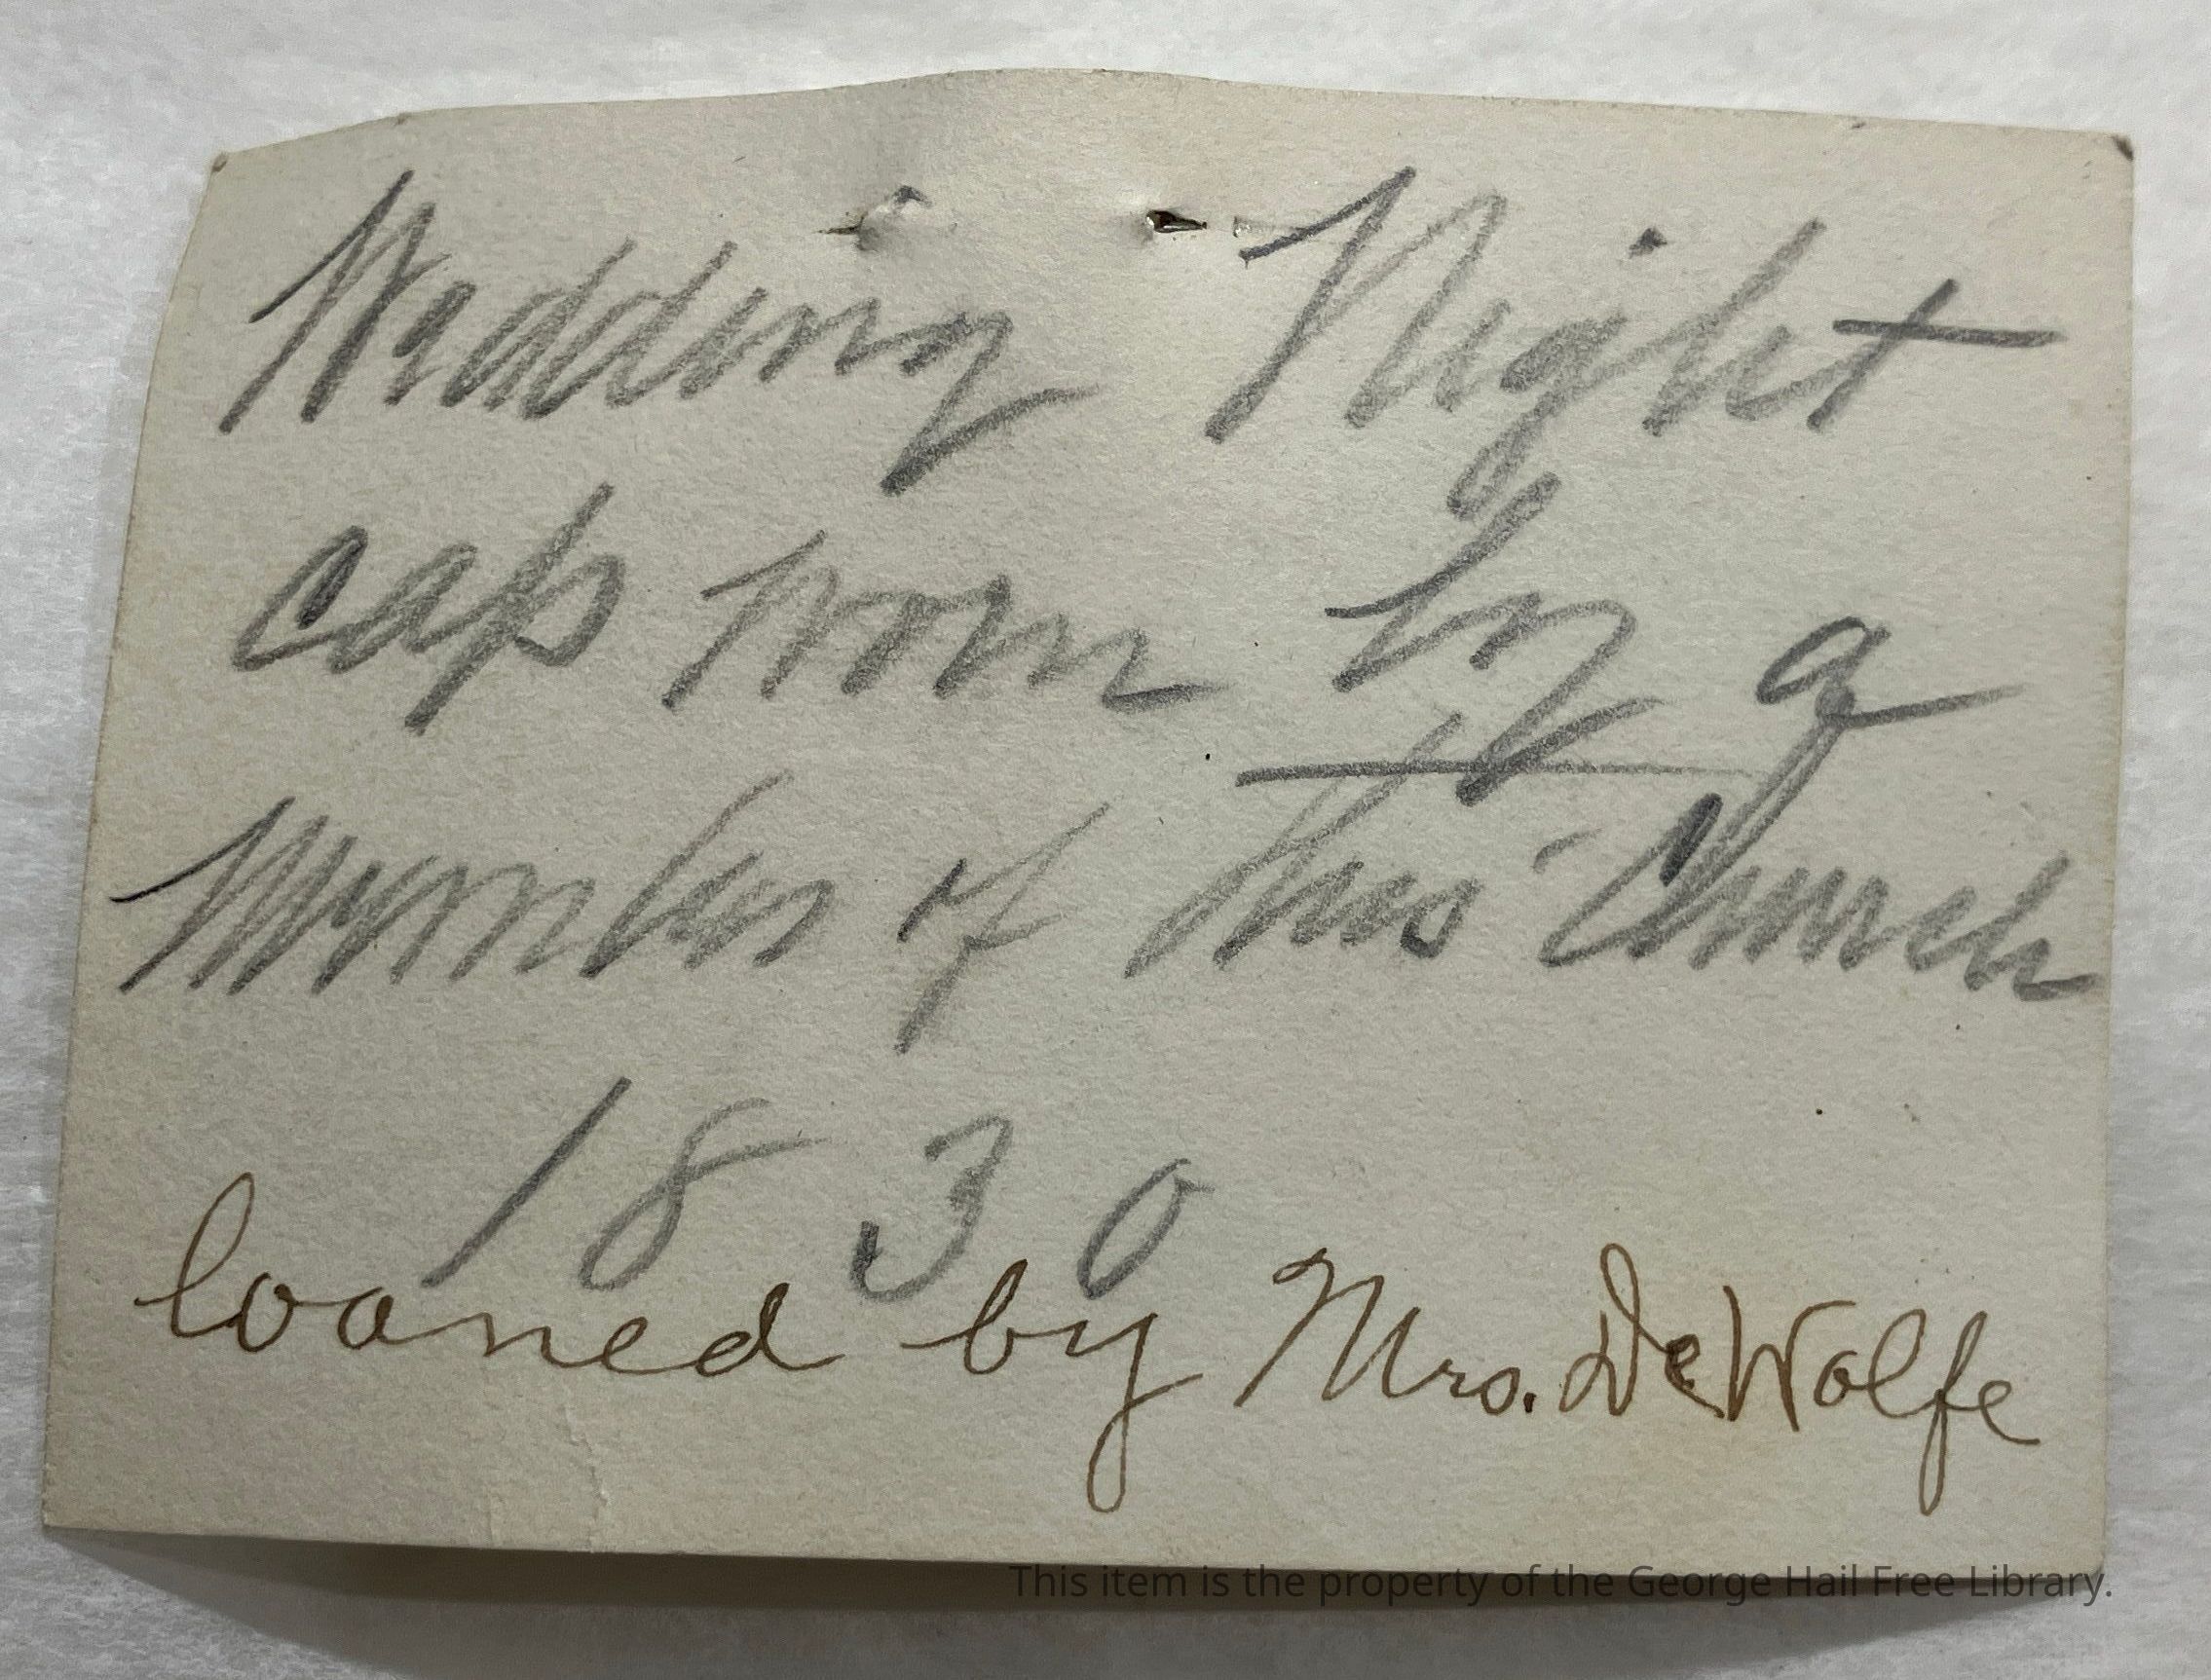 Wedding Night
cap worn by a
Member of this Church
1830
loaned by Mrs. DeWolfe
This item is the property of the George Hail Free Library.